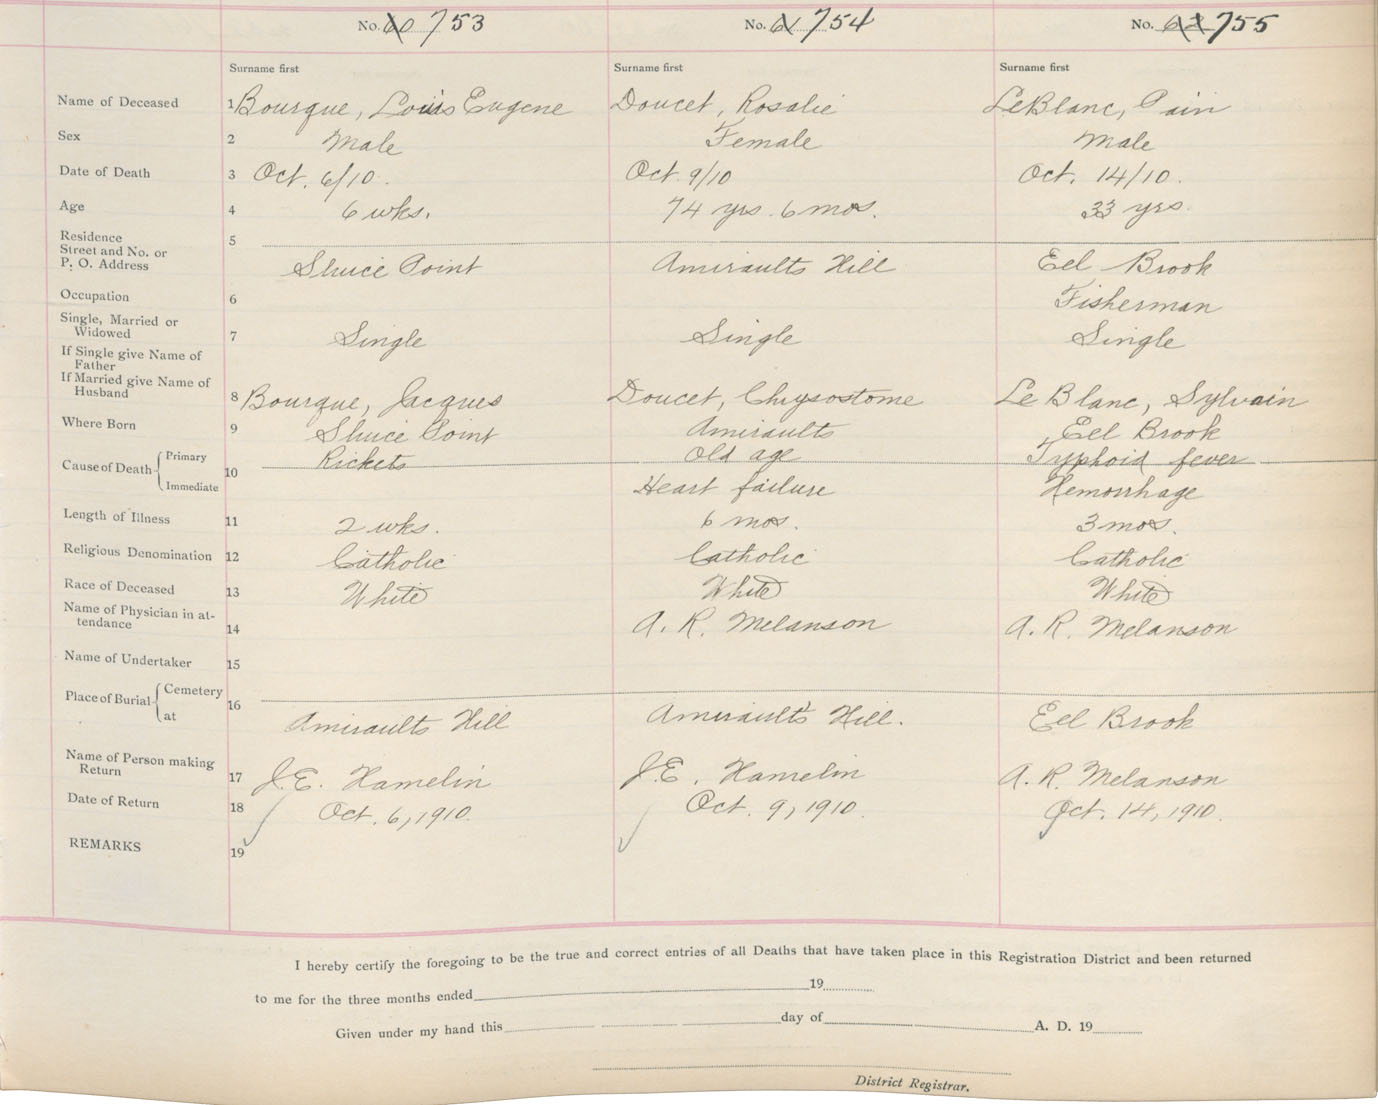 No. 60 753 No. 61 754 No. 62 755
Surname first Surname first Surname first
Name of Deceased 1 Bourque, Louis Eugene Doucet, Rosalie LeBlanc, Pain
Sex 2 Male Female Male
Date of Death 3 Oct. 6/10. Oct. 9/10 Oct. 14/10.
Age 4 6 wks. 74 yrs. 6 mos. 33 yrs.
Residence 5
Street and No. or
P. O. Address Sluice Point Amiraults Hill Eel Brook
Occupation 6 Fisherman
Single, Married or
Widowed 7 Single Single Single
If Single give Name of
Father
If Married give Name of
Husband 8 Bourque, Jacques Doucet, Chrysostome Le Blanc, Sylvain
Where Born 9 Sluice Point Amiraults Eel Brook
Cause of Death Primary 10 Rickets Old age Typhoid fever
Immediate Heart failure Hemorrhage
Length of Illness 11 2 wks. 6 mos. 3 mos.
Religious Denomination 12 Catholic Catholic Catholic
Race of Deceased 13 White White White
Name of Physician in at-
tendance 14 A. R. Melanson A. R. Melanson
Name of Undertaker 15
Place of Burial Cemetery 16
at Amiraults Hill Amirault's Hill. Eel Brook
Name of Person making
Return 17 J. E. Hamelin J. E. Hamelin A. R. Melanson
Date of Return 18 Oct. 6, 1910. Oct. 9, 1910. Oct. 14, 1910.
REMARKS 19
I hereby certify the foregoing to be the true and correct entries of all Deaths that have taken place in this Registration District and been returned
to me for the three months ended 19
Given under my hand this day of A. D. 19
District Registrar.